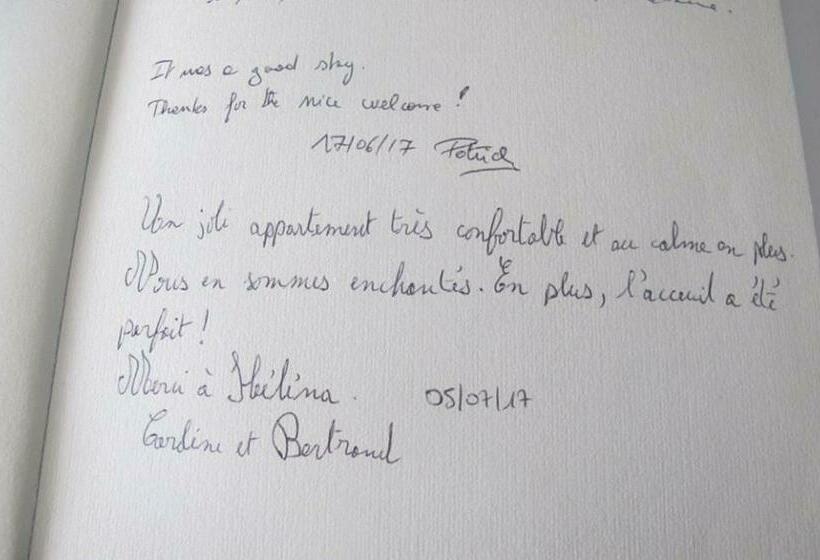 It was a good stay.
Thanks for the nice welcome !
17/06/17 Patrick
Un joli appartement très confortable et au calme en plus.
Nous en sommes enchantés. En plus, l'acceuil a été
parfait !
Merci à Héléna. 05/07/17
et Bertrand